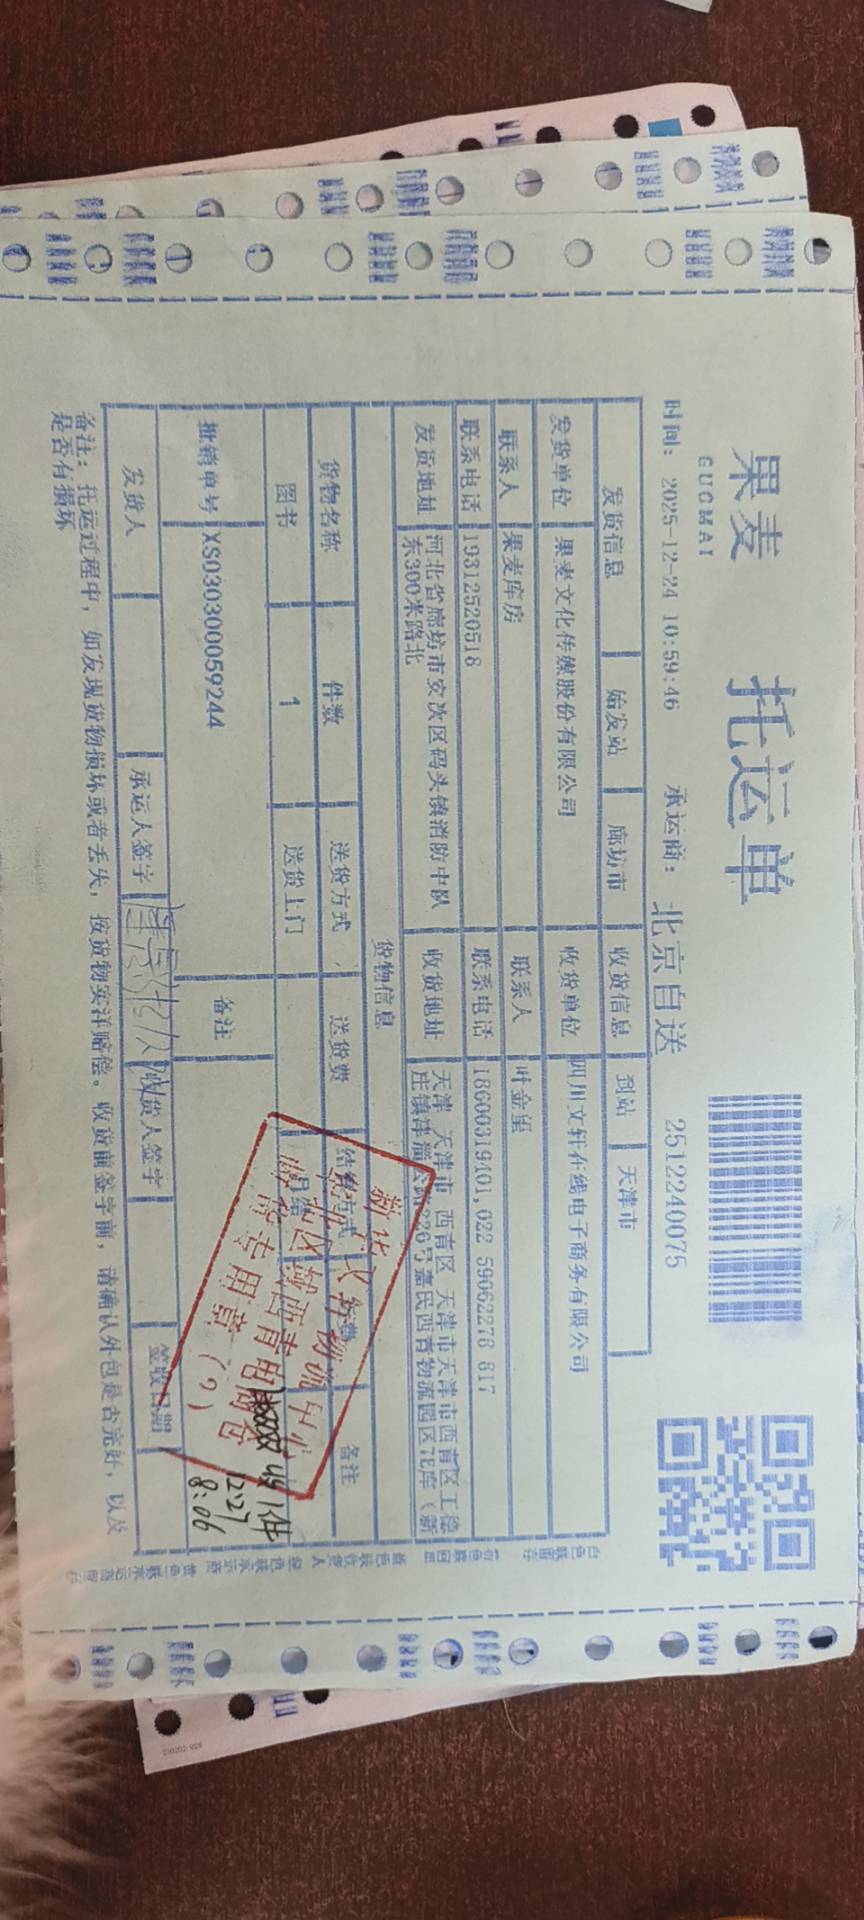 果麦 托运单
GUOMAI
时间: 2025-12-24 10:59:46 承运商: 北京自送 2512240075
发货信息 始发站 廊坊市 收货信息 到站 天津市
发货单位 果麦文化传媒股份有限公司 收货单位 四川文轩在线电子商务有限公司
联系人 果麦库房 联系人 叶金星
联系电话 19312520518 联系电话 18600319401,022 59062278 817
发货地址 河北省廊坊市安次区码头镇消防中队 收货地址 天津 天津市 西青区 天津市天津市西青区王稳
东300米路北 庄镇津淄公路226号嘉民西青物流园区7E库（新
货物信息
货物名称 件数 送货方式 送货费 结算方式 备注
图书 1 送货上门 月结
批销单号 XS030300059244 备注
发货人 承运人签字 收货人签字 签收日期
备注：托运过程中，如发现货物损坏或者丢失，按货物实洋赔偿。收货前签字前，请确认外包是否完好，以及
是否有损坏
新华文轩物流中心
华北区域西青电商仓
收货专用章（7）
收1件
12.27
8:06